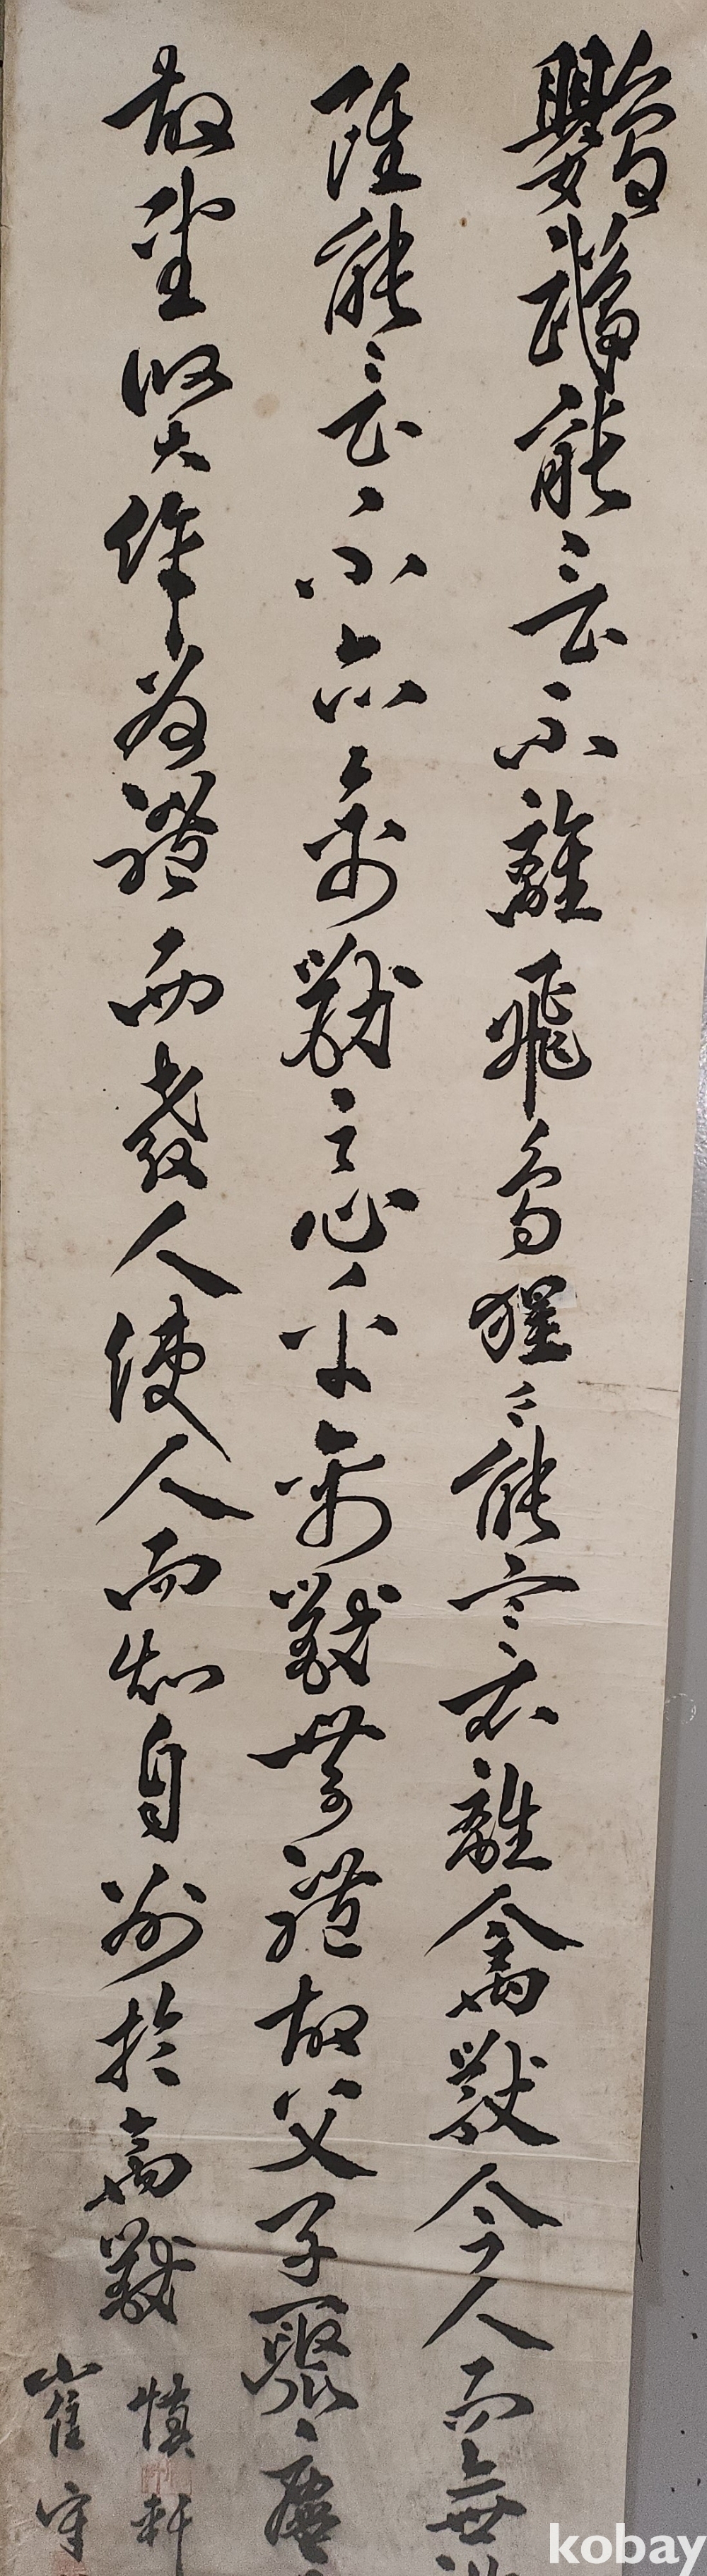 鸚鵡能言不離飛鳥猩〻能言不離禽獸今人而無
雖能言不亦禽獸之心乎禽獸無禮故父子聚麀
故聖賢作爲禮而敎人使人而知自別於禽獸
愼軒
崔守
kobay